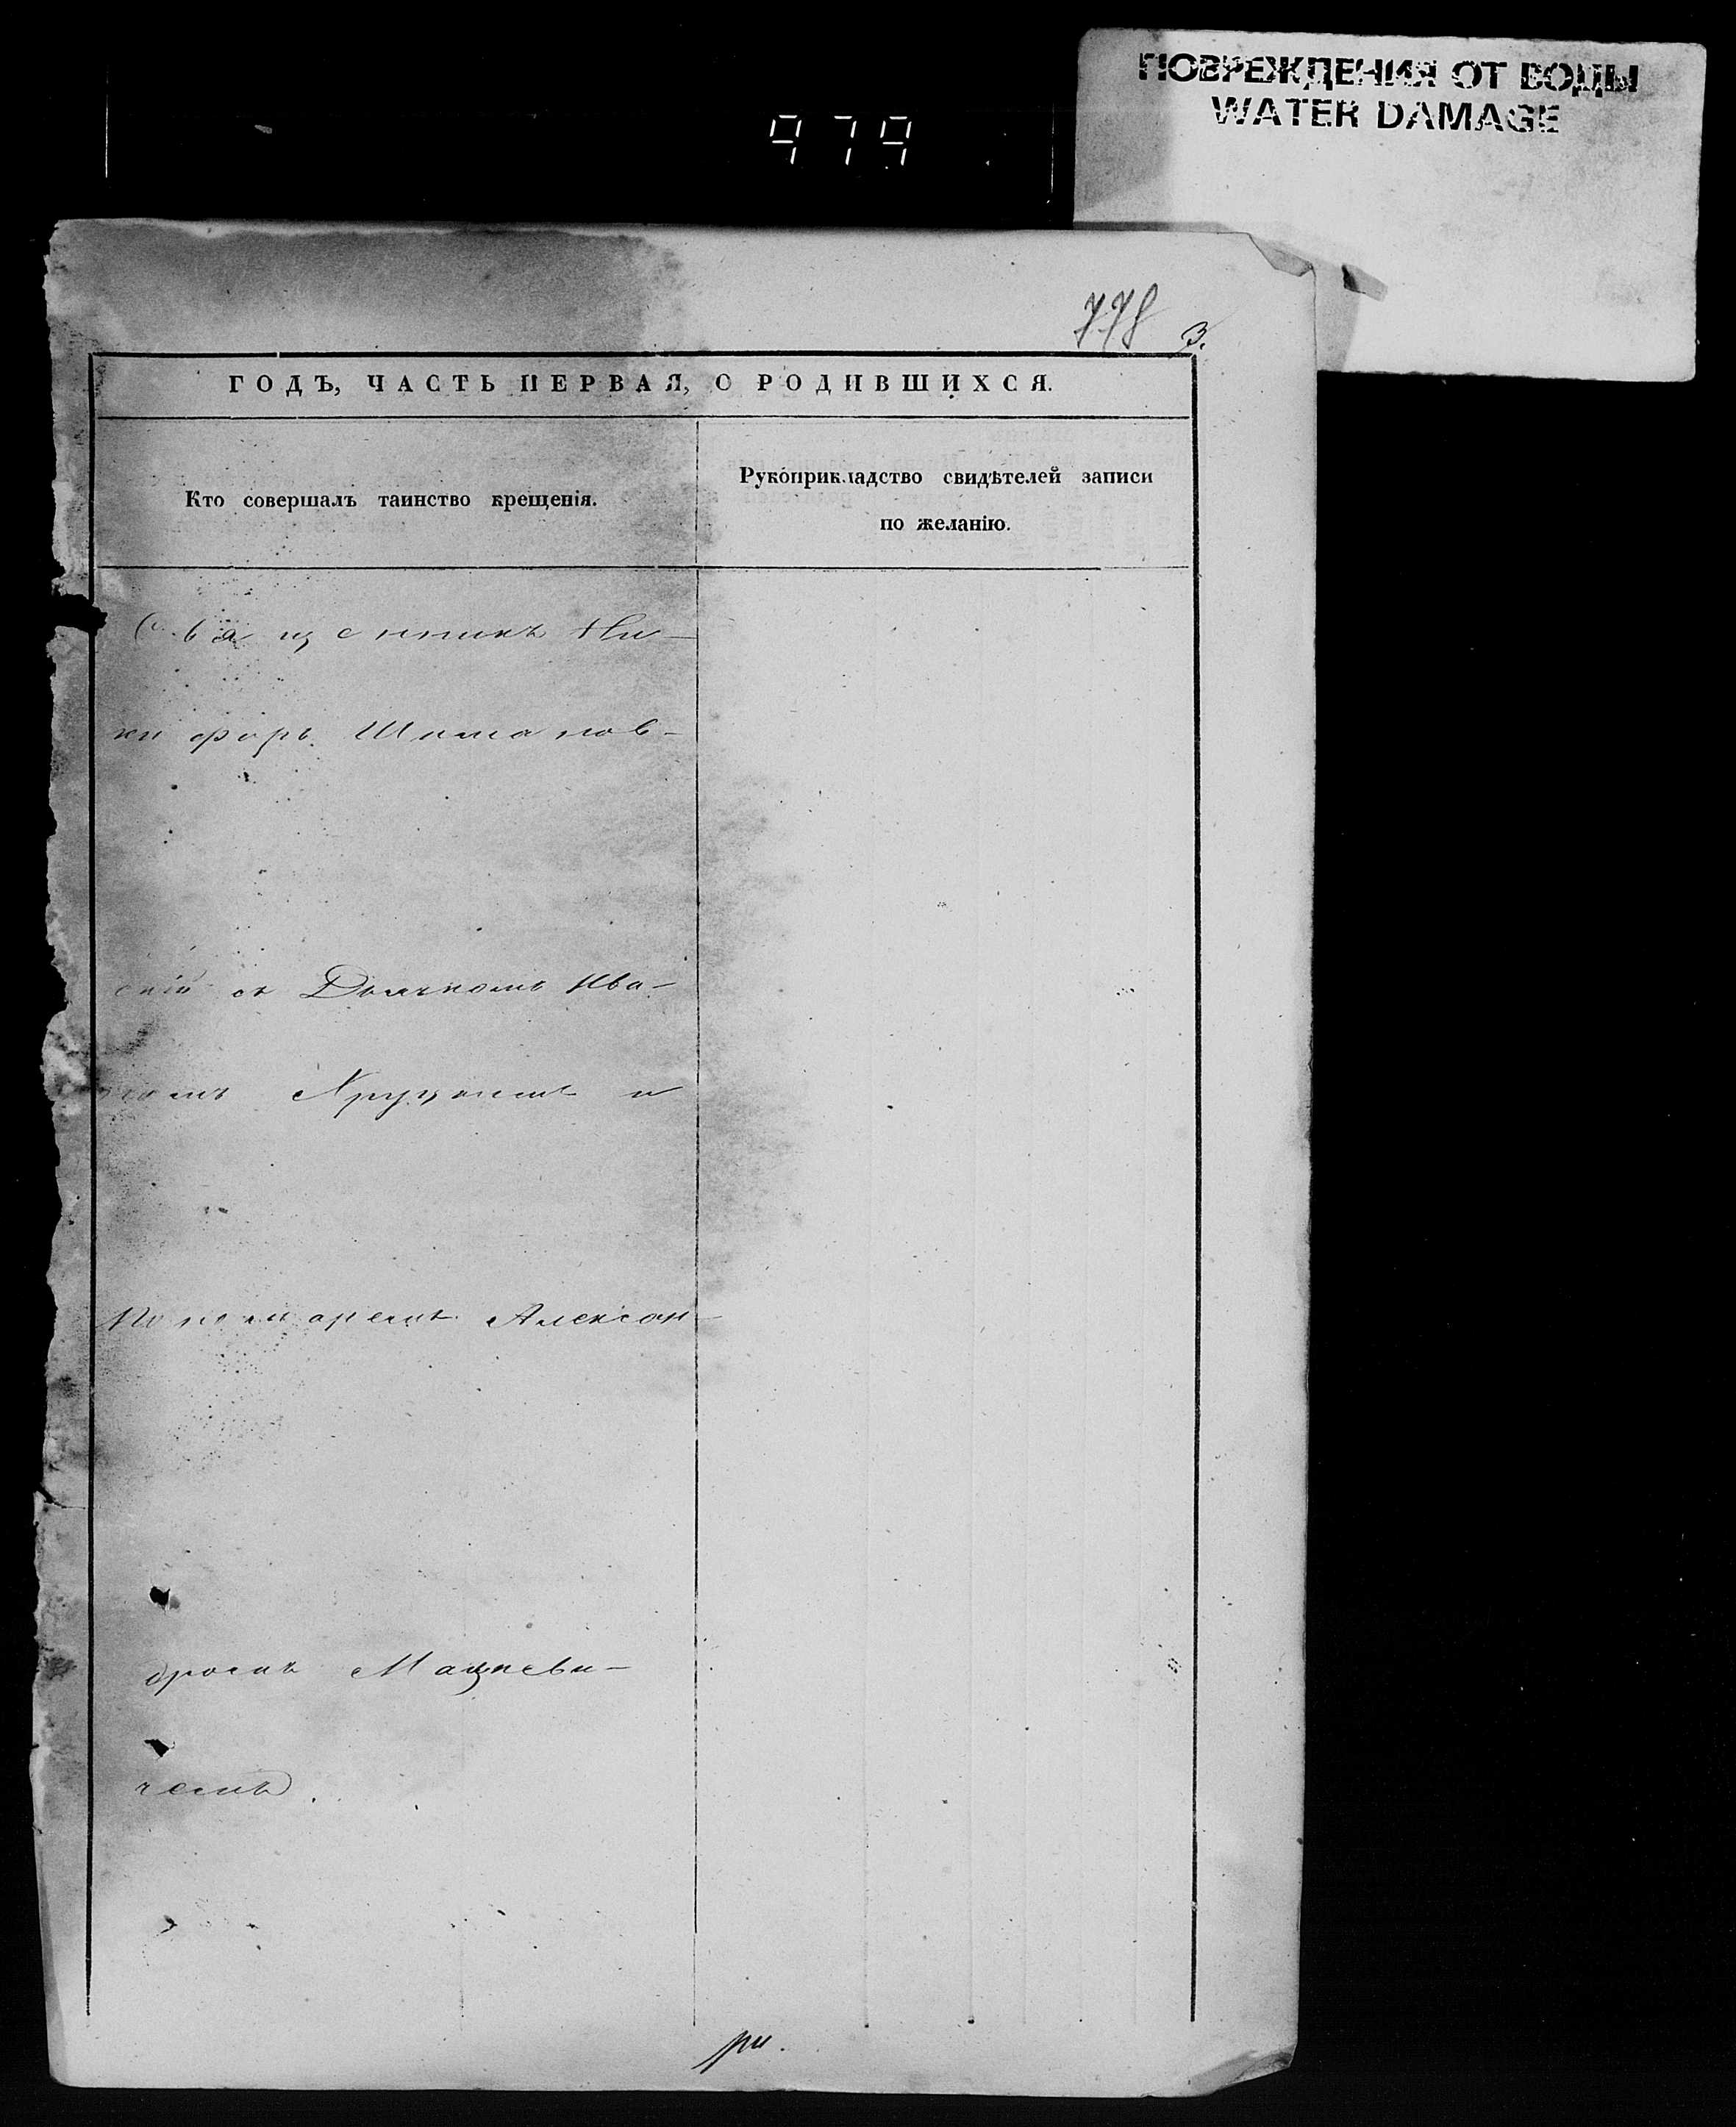 ПОВРЕЖДЕНИЯ ОТ ВОДЫ
WATER DAMAGE
979
778 3.
ГОДЪ, ЧАСТЬ ПЕРВАЯ, О РОДИВШИХСЯ.
Кто совершалъ таинство крещенія.
Рукоприкладство свидѣтелей записи
по желанію.
Священникъ Ни-
кифоръ Шиманов-
скій съ Дьячкомъ Ива-
номъ Хруцкимъ и
Пономаремъ Алексан-
дромъ Мацкеви-
чемъ.
ри.